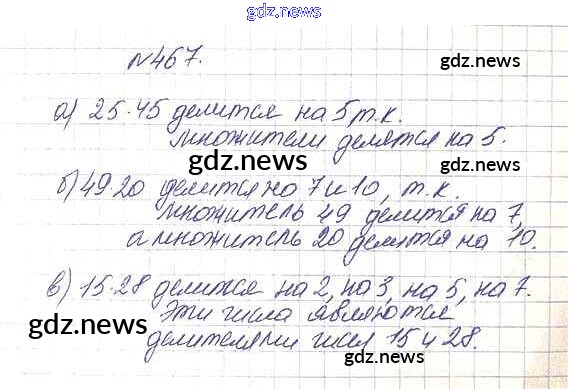 gdz.news
№467.
gdz.news
а) 25·45 делится на 5, т.к.
множители делятся на 5.
gdz.news
б) 49·20 делится на 7 и 10, т.к.
множитель 49 делится на 7,
а множитель 20 делится на 10.
в) 15·28 делится на 2, на 3, на 5, на 7.
Эти числа являются
gdz.news
gdz.news
делителями чисел 15 и 28.
gdz.news